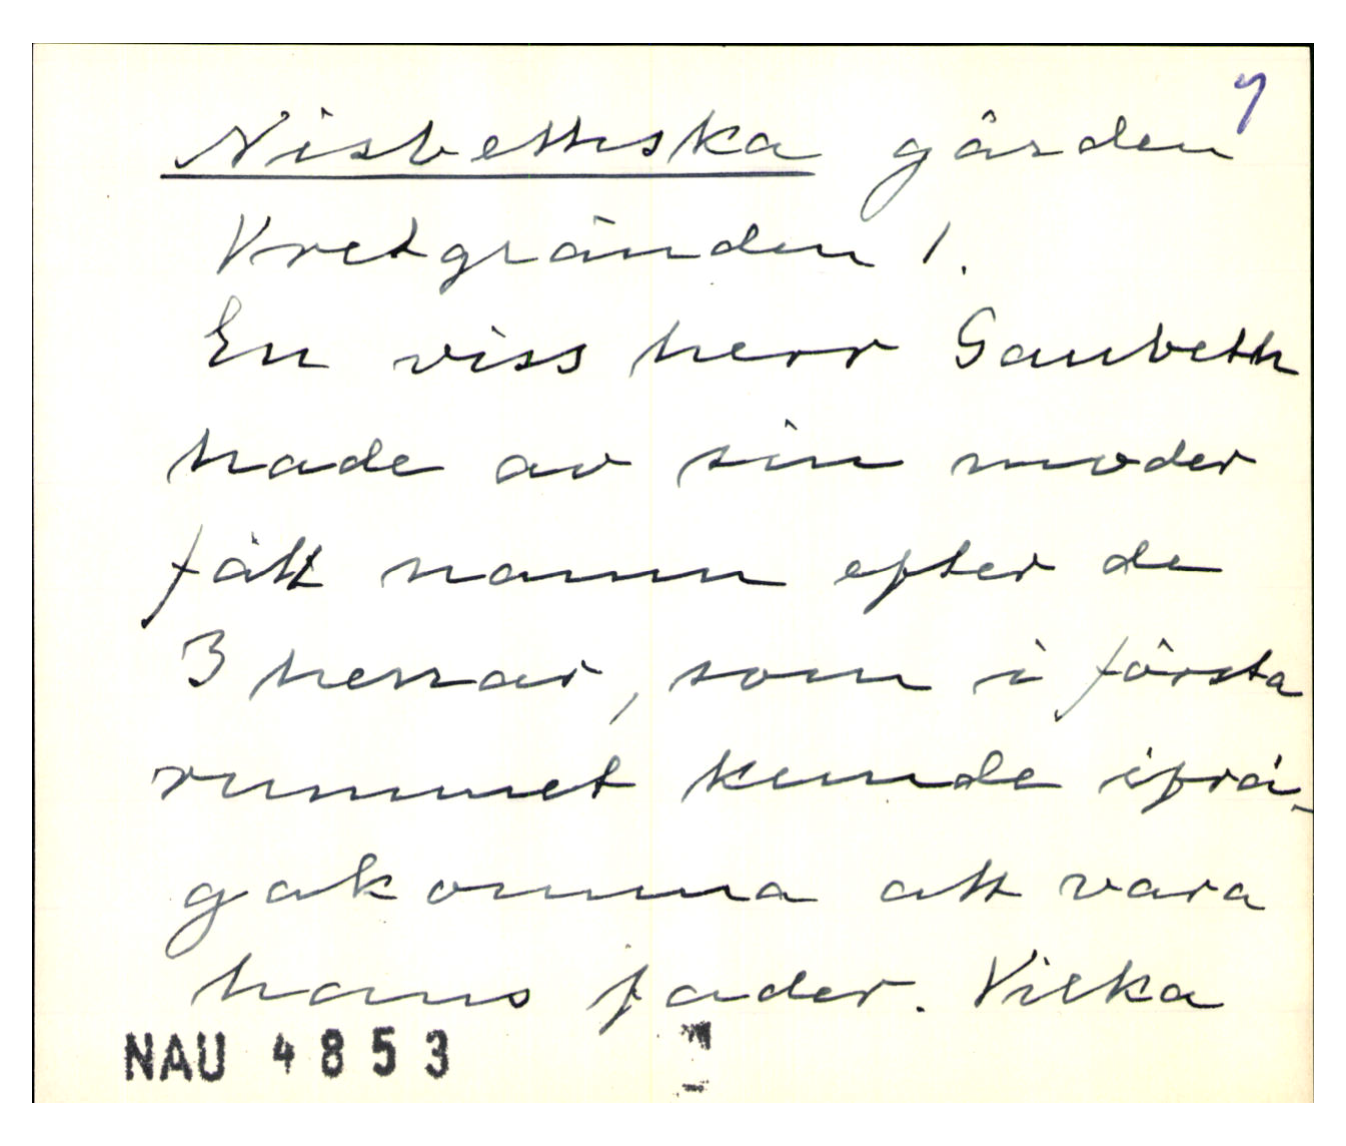 7
Nisbethska gården
Vretgränden 1.
En viss herr Gaubeth
hade av sin moder
fått namn efter de
3 herrar, som i första
rummet kunde ifrå-
gakomma att vara
hans fader. Vilka
NAU 4853